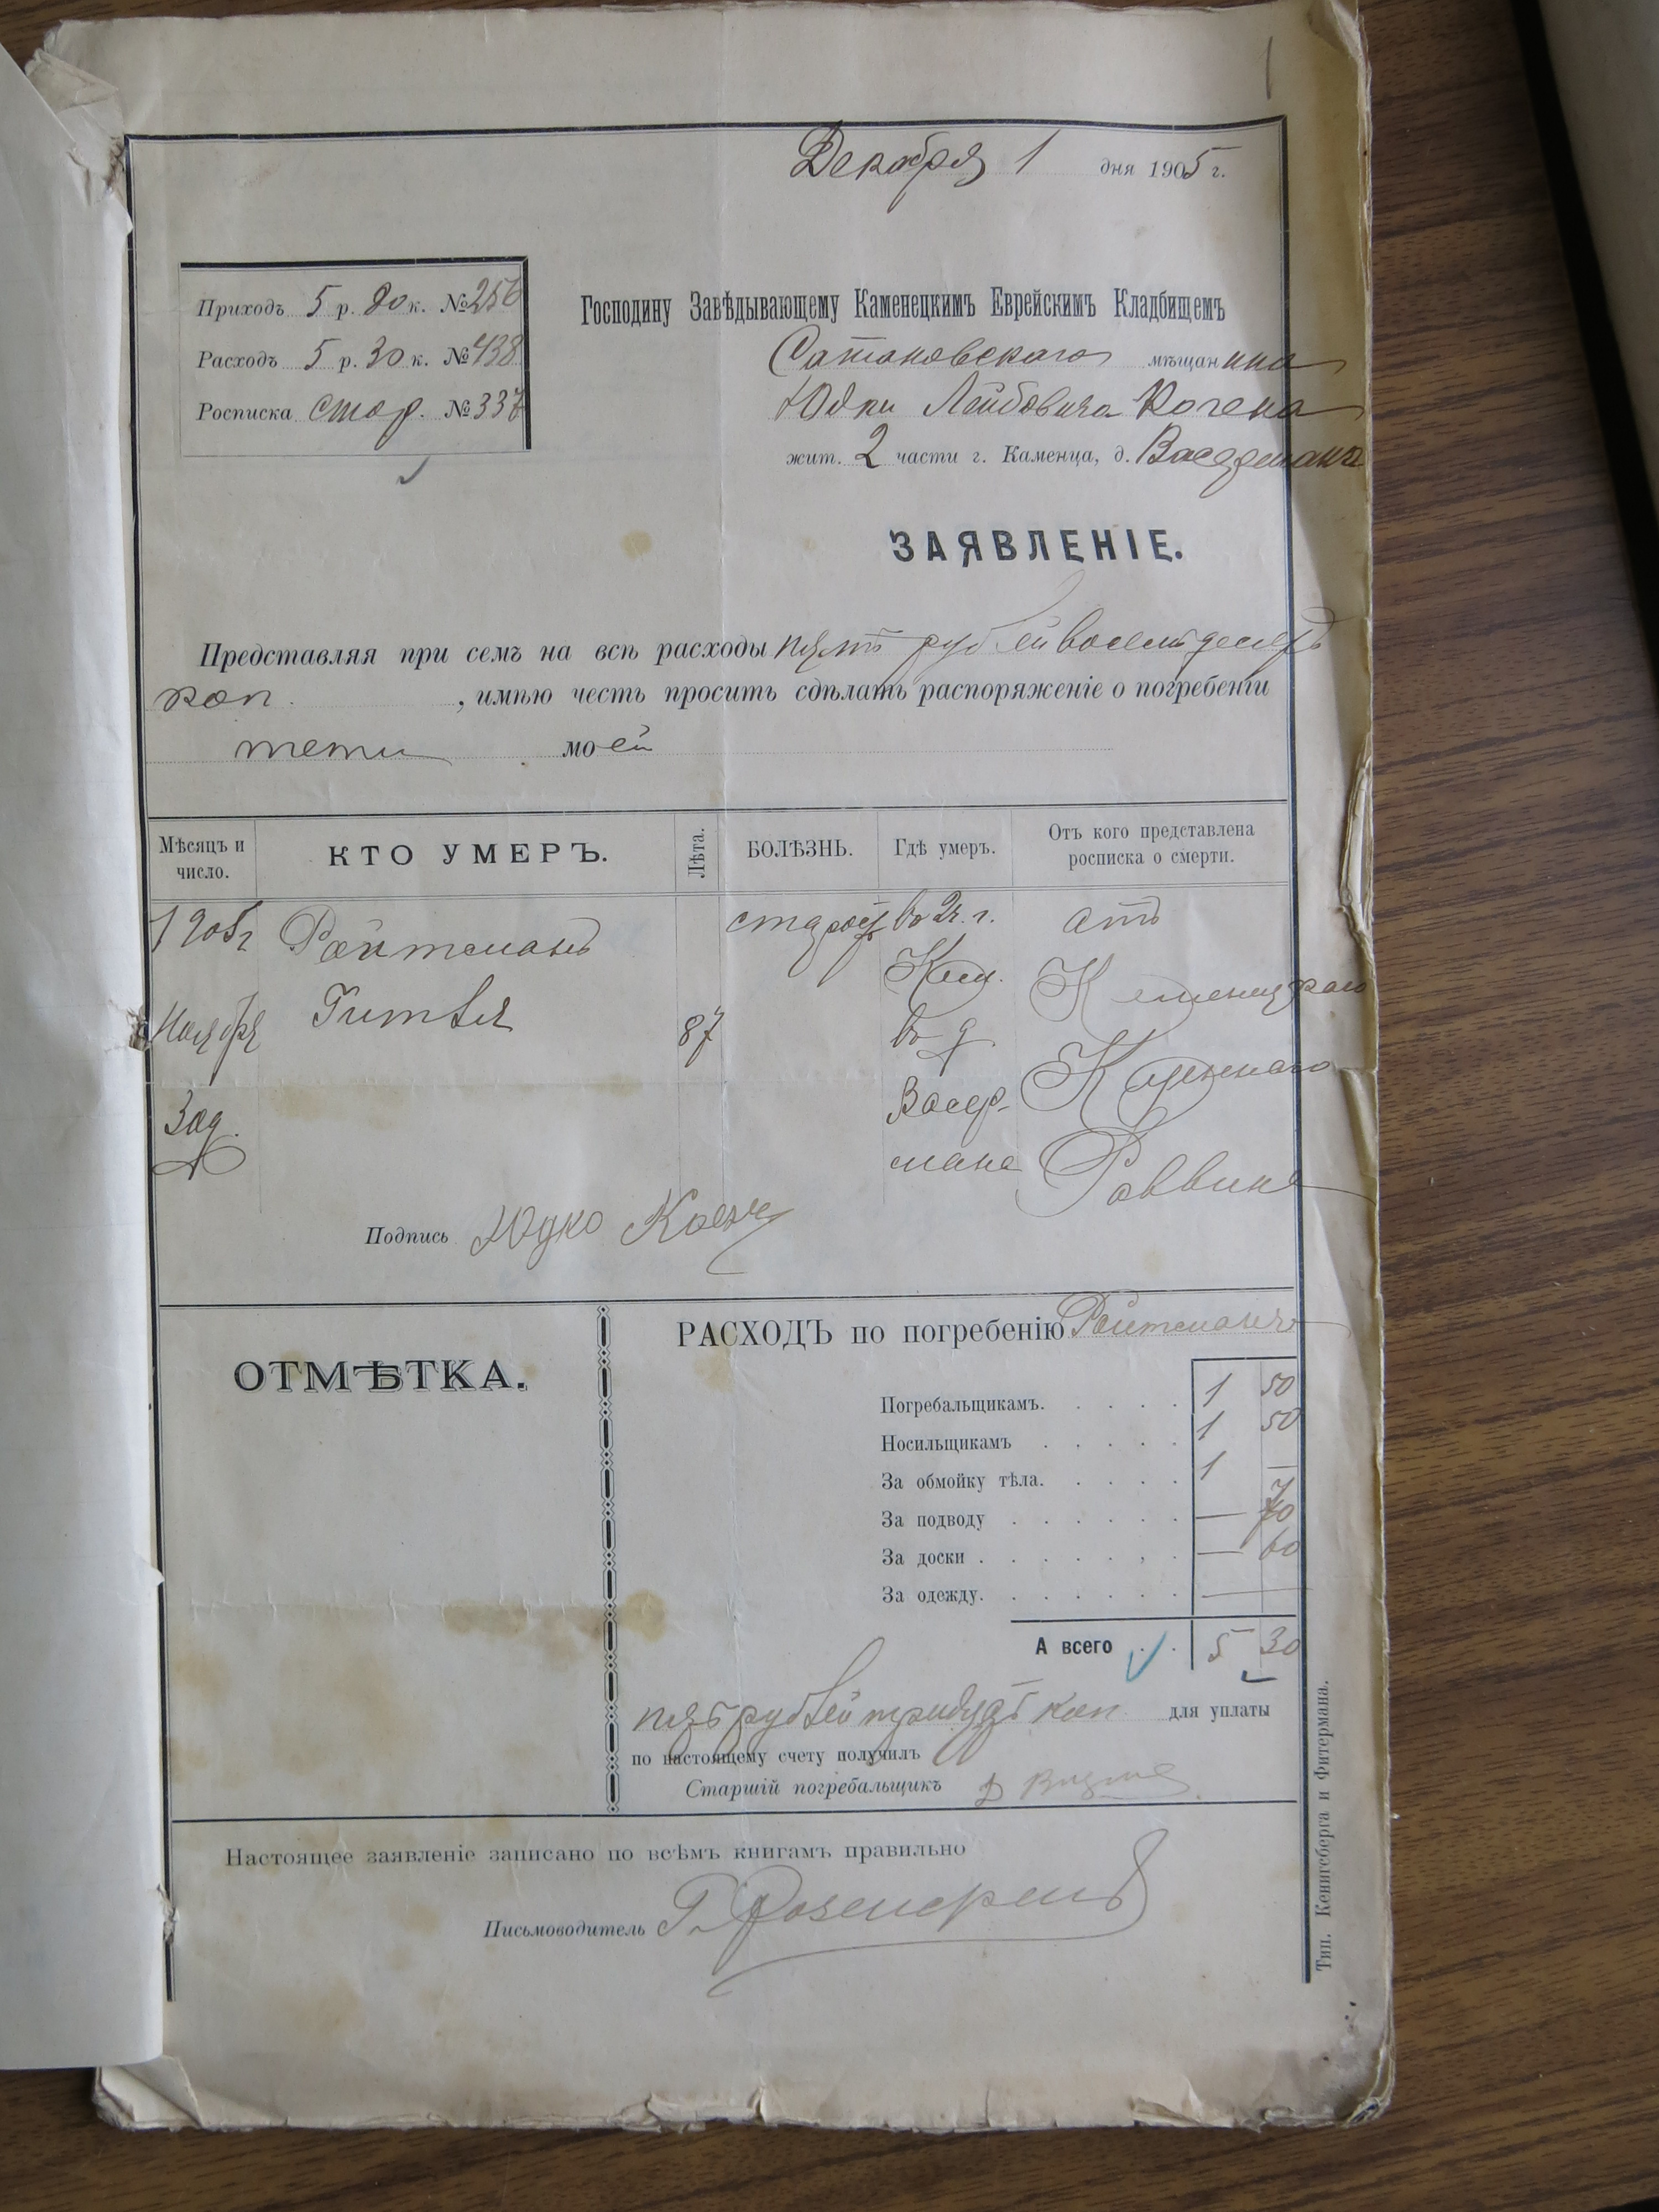 Декабря 1 дня 1905 г.
Приходъ 5 р. 80 к. № 256
Расходъ 5 р. 30 к. № 438
Росписка стор. № 337
Господину Завѣдывающему Каменецкимъ Еврейскимъ Кладбищемъ
Сатановскаго мѣщанина
Юдки Лейбовича Когена
жит. 2 части г. Каменца, д. Васермана
ЗАЯВЛЕНІЕ.
Представляя при семъ на всѣ расходы пять рублей восемьдесятъ
коп. , имѣю честь просить сдѣлать распоряженіе о погребеніи
тети моей
Мѣсяцъ и число. КТО УМЕРЪ. Лѣта. БОЛѢЗНЬ. Гдѣ умеръ. Отъ кого представлена росписка о смерти.
1905 г Ройтманъ старость въ 2 ч. г. отъ
Кам. Каменецкаго
Ноября Гитля 87 въ д. Казеннаго
30 д. Васер-
мана Раввина
Подпись Юдко Коген
ОТМѢТКА.
РАСХОДЪ по погребенію Ройтманъ
Погребальщикамъ. 1 50
Носильщикамъ 1 50
За обмойку тѣла. 1 —
За подводу — 70
За доски — 60
За одежду. —
А всего 5 30
пять рублей тридцать коп для уплаты
по настоящему счету получилъ
Старшій погребальщикъ
Настоящее заявленіе записано по всѣмъ книгамъ правильно
Письмоводитель Г. Розенкранъ
Тип. Кенигсберга и Фитермана.